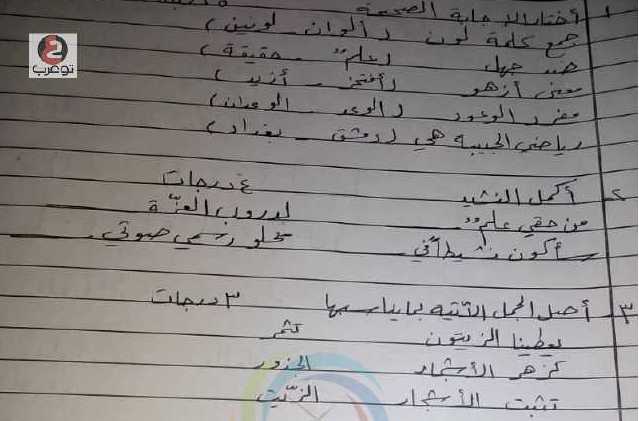 ١- أختار الإجابة الصحيحة
جمع كلمة لون ( ألوان - لونين )
ضد جهل ( علم - حقيقة )
معنى أزهو ( أفتخر - أزيد )
مفرد الوعود ( الوعد - الوعدان )
رياضي الحبيبة هي ( دمشق - بغداد )
٢- أكمل النشيد ٤ درجات
من حقي علم لدروب العزّة
سأكون نشيطاً في يحلو رسمي صوتي
٣- أصل الجمل الآتية بما يناسبها ٣ درجات
يعطينا الزيتون تثمر
تزهر الأشجار الجذور
تثبت الأشجار الزّيت
توعرب